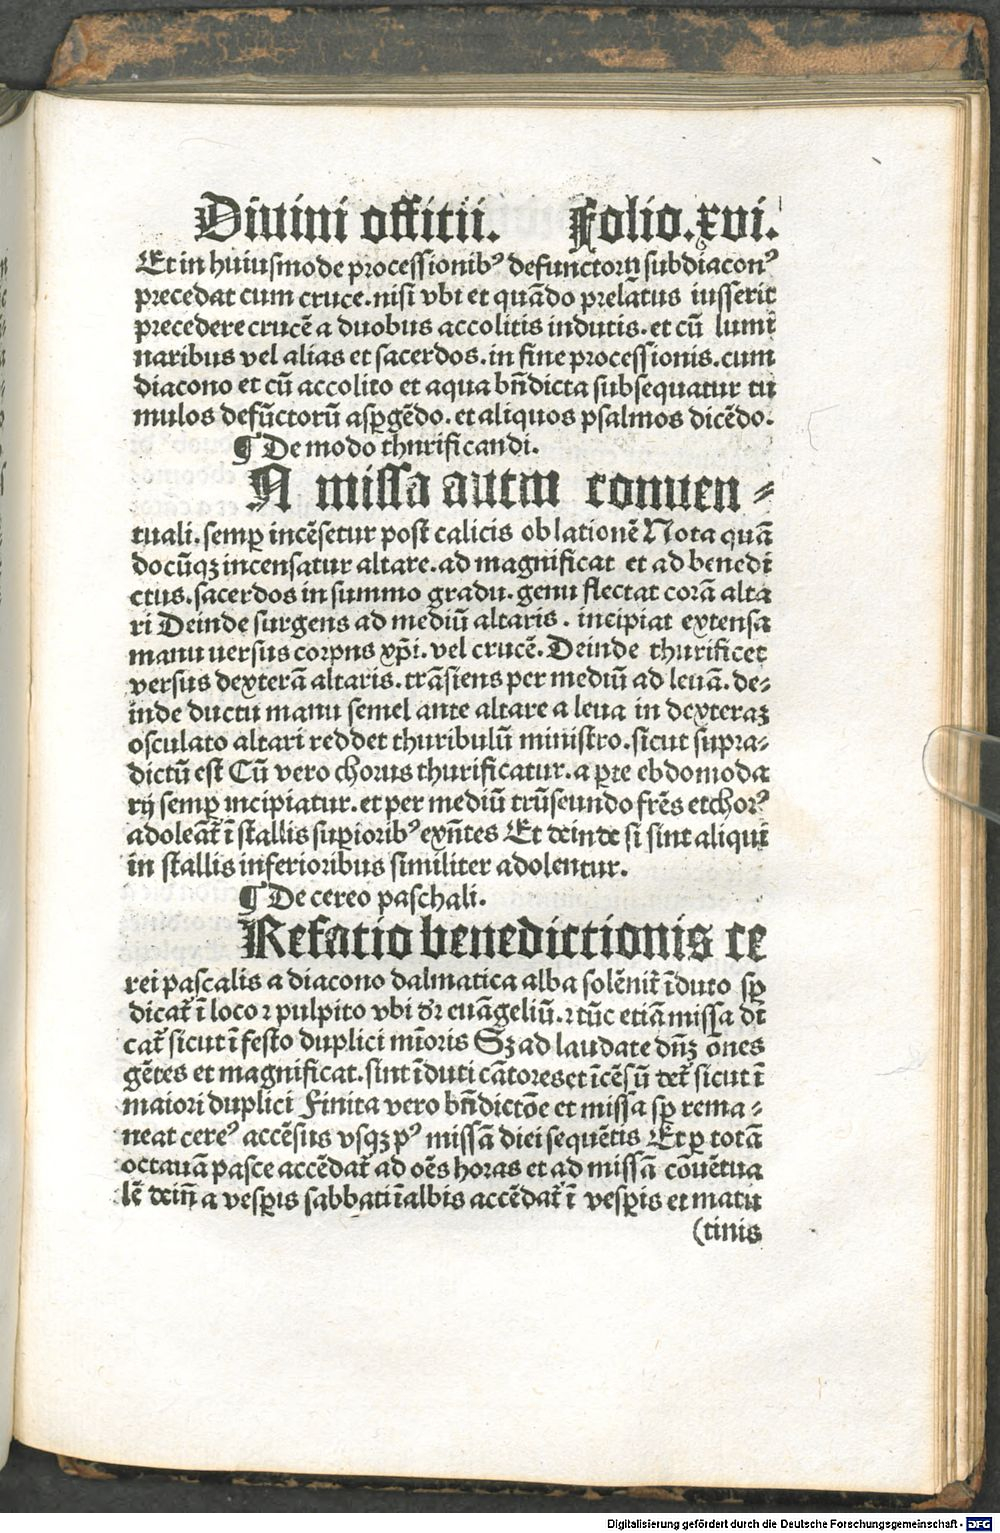 Diuini offitii. Folio.xvi.
Et in huiusmode processionibꝰ defunctorū subdiaconꝰ
precedat cum cruce.nisi vbi et quādo prelatus iusserit
precedere crucē a duobus accolitis indutis.et cū lumī
naribus vel alias et sacerdos.in fine processionis.cum
diacono et cū accolito et aqua bn̄dicta subsequatur tu
mulos defūctorū asꝑgēdo.et aliquos psalmos dicēdo.
¶ De modo thurificandi.
N missa autm conuen⸗
tuali.semꝑ incēsetur post̄ calicis oblationē Nota quā
docūqꝫ incensatur altare.ad magnificat et ad benedi
ctus.sacerdos in summo gradu.genu flectat corā alta
ri Deinde surgens ad mediū altaris. incipiat extensa
manu uersus corpus xp̄i.vel crucē.Deinde thurificet
versus dexterā altaris.trāsiens per mediū ad leuā.de⸗
inde ductu manu semel ante altare a leua in dexteraꝫ
osculato altari reddet thuribulū ministro.sicut supra⸗
dictū est Cū vero chorus thurificatur.a ꝑte ebdomoda
rij semꝑ incipiatur.et per mediū trūseundo frēs et chorꝰ
adoleāt̄ ī stallis suꝑioribꝰ exn̄tes Et deinde si sint aliqui
in stallis inferioribus similiter adolentur.
¶ De cereo paschali.
Refatio benedictionis ce
rei pascalis a diacono dalmatica alba solēnit̄ īduto sꝑ
dicat̄ ī loco ⁊ pulpito vbi dr̄ euāgeliū.⁊ tūc etiā missa dī
cat̄ sicut ī festo duplici mīoris Sꝫ ad laudate dn̄ꝫ ōnes
gētes et magnificat.sint īduti cātores et īcēsū det̄ sicut ī
maiori duplici Finita vero bn̄dictōe et missa sꝑ rema⸗
neat cereꝰ accēsus vsqꝫ pꝰ missā diei sequētis Et ꝑ totā
octauā pasce accēdat̄ ad oēs horas et ad missā cōuētua
lē dein̄ a vesꝑis sabbati ī albis accēdat̄ ī vesꝑis et matu
(tinis
Digitalisierung gefördert durch die Deutsche Forschungsgemeinschaft - DFG